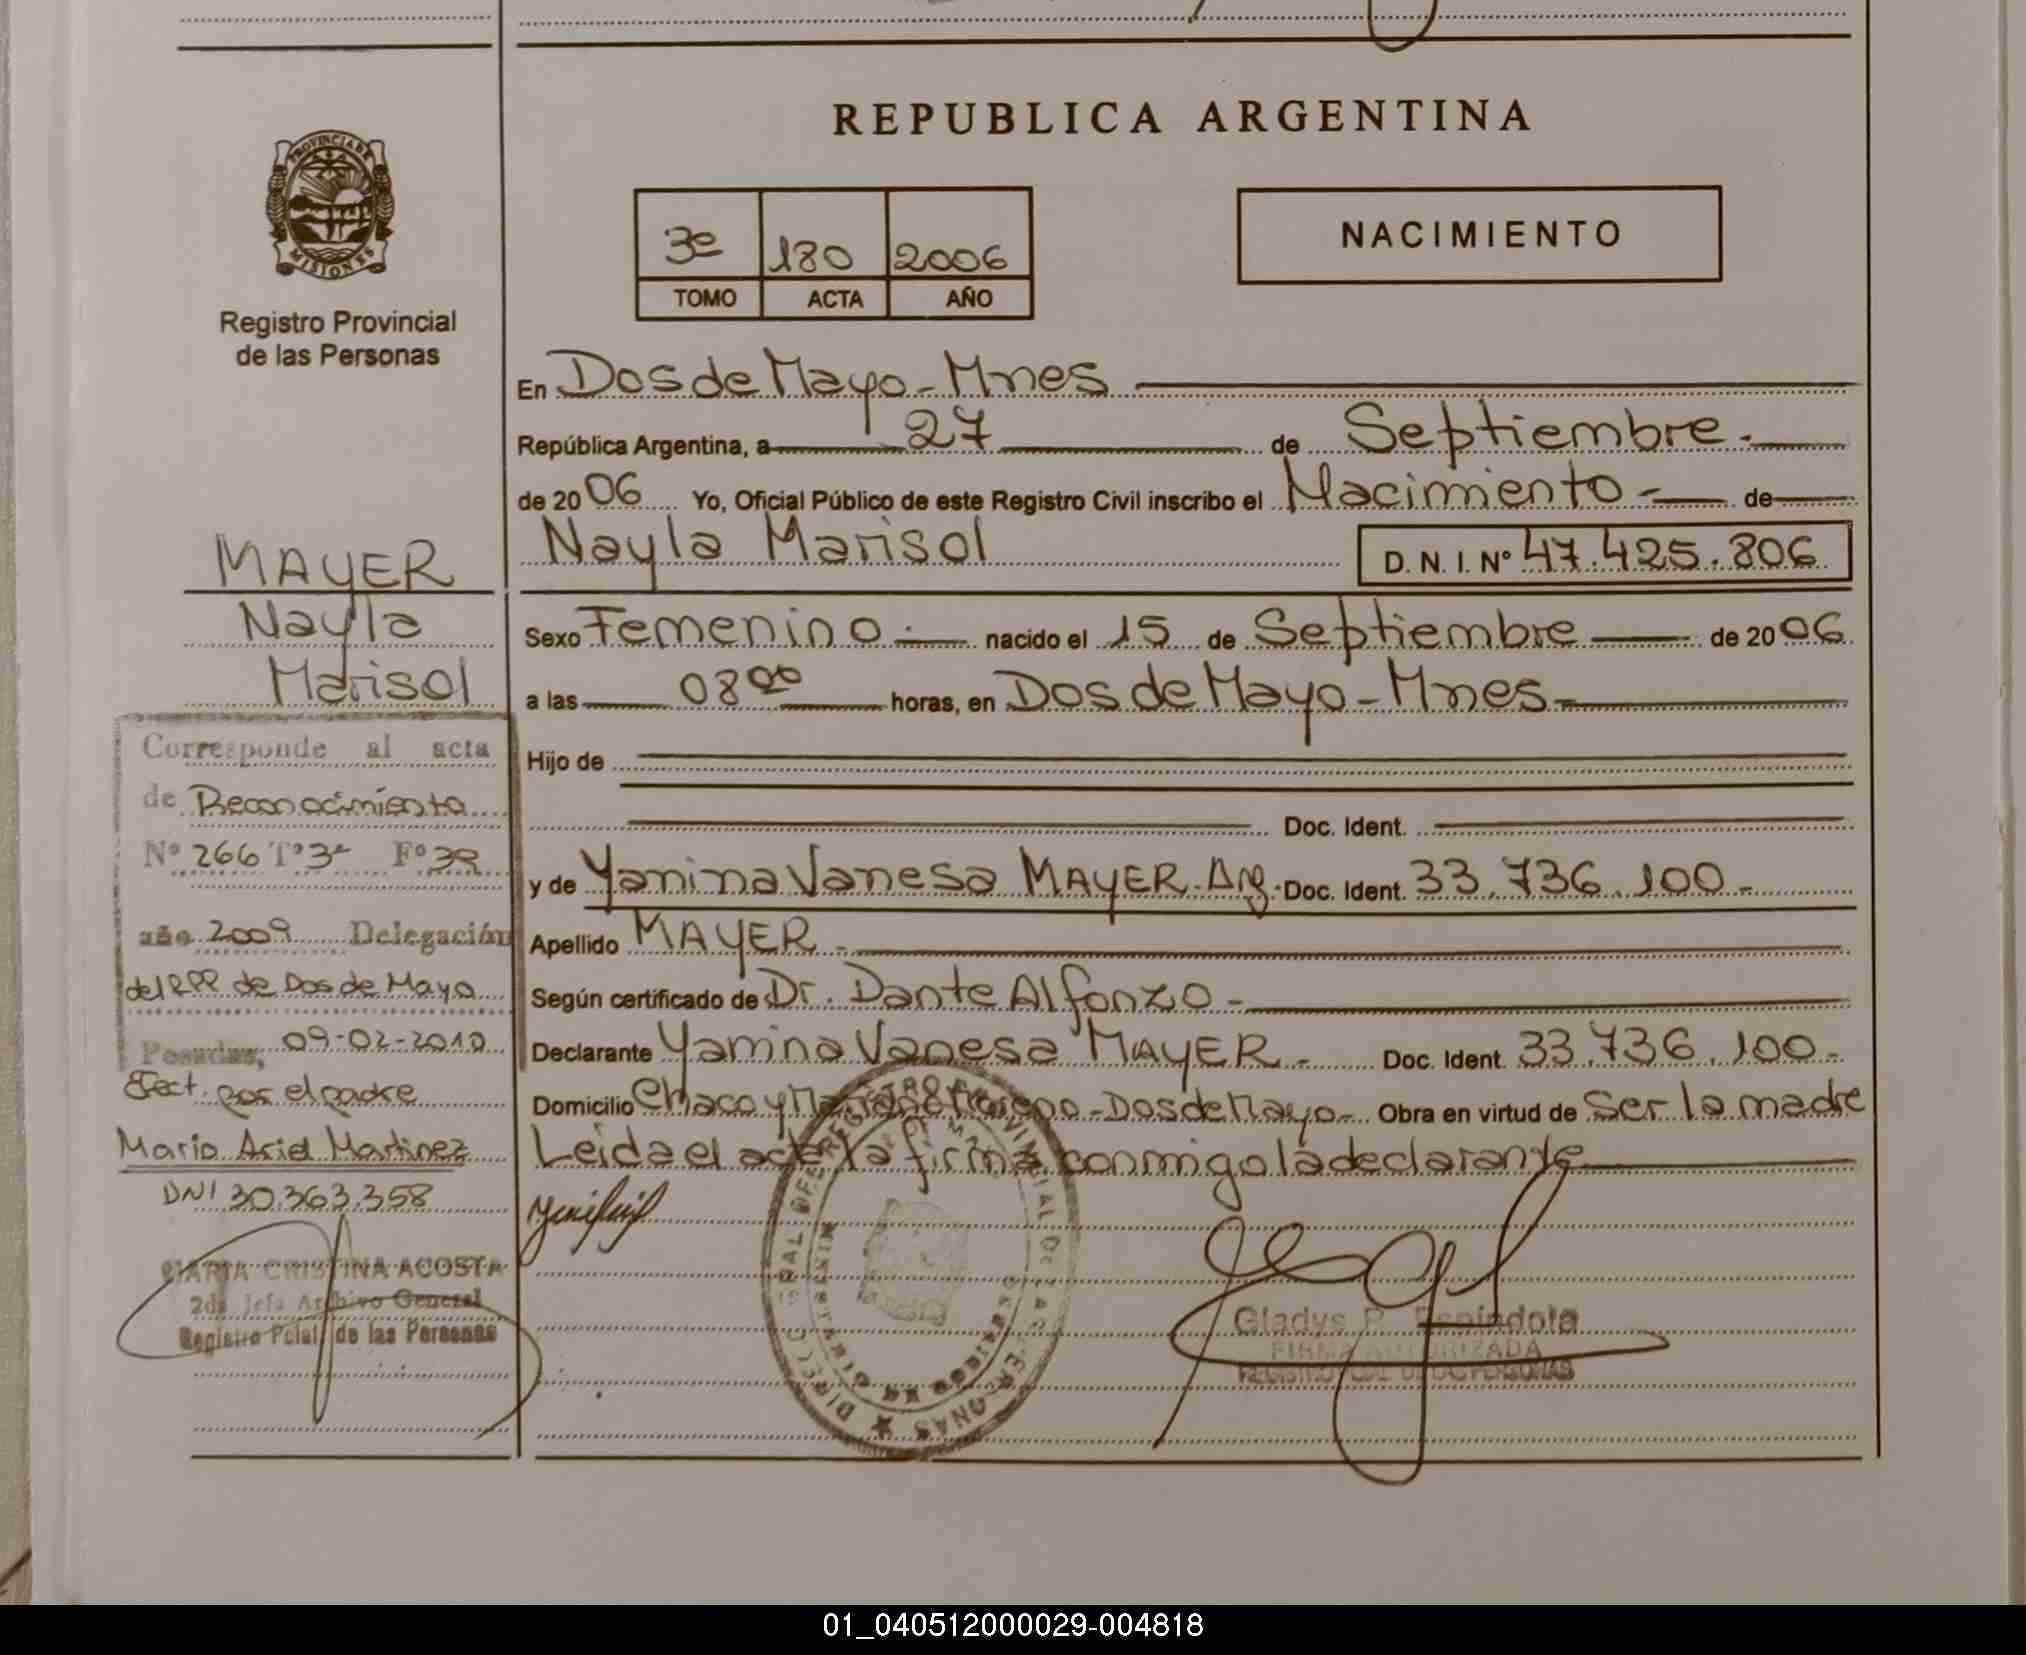 REPUBLICA ARGENTINA
PROVINCIA DE
MISIONES
Registro Provincial
de las Personas
3º 180 2006
TOMO ACTA AÑO
NACIMIENTO
En Dos de Mayo - Mnes
República Argentina, a 27 de Septiembre.
de 2006 Yo, Oficial Público de este Registro Civil inscribo el Nacimiento - de
Nayla Marisol D. N. I. Nº 47.425.806
Sexo Femenino nacido el 15 de Septiembre de 2006
a las 08 00 horas, en Dos de Mayo - Mnes -
Hijo de
Doc. Ident.
y de Yanina Vanesa MAYER - Arg. Doc. Ident. 33.736.100 -
Apellido MAYER -
Según certificado de Dr. Dante Alfonzo -
Declarante Yanina Vanesa MAYER - Doc. Ident. 33.736.100 -
Domicilio Chaco y Mariano Moreno - Dos de Mayo - Obra en virtud de Ser la madre
Leida el acta la firma conmigo la declarante
MAYER
Nayla
Marisol
Corresponde al acta
de Reconocimiento
Nº 266 Tº 3º Fº 39
año 2009 Delegación
del RPP de Dos de Mayo
Posadas, 09-02-2010
Efect. por el padre
Mario Ariel Martinez
DNI 30.363.358
MARIA CRISTINA ACOSTA
2da Jefa Archivo General
Registro Pcial de las Personas
Gladys P. Espindola
FIRMA AUTORIZADA
REGISTRO PCIAL DE LAS PERSONAS
01_040512000029-004818